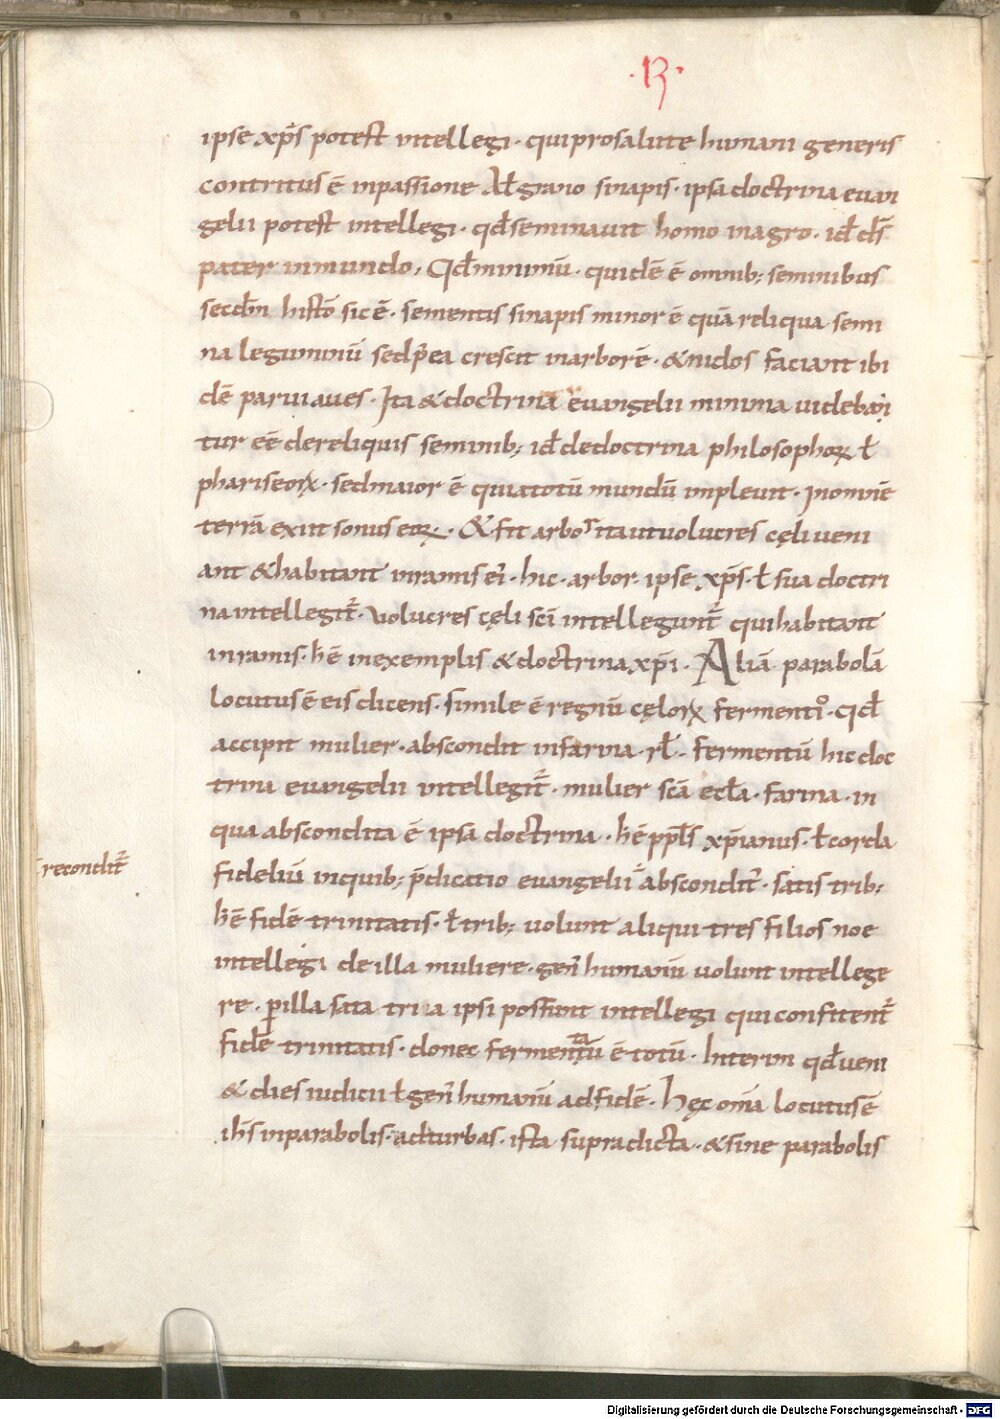 ·13·
ipse xp̄s potest intellegi · qui pro salute humani generis
contritus ē in passione Al̄ grano sinapis · ipsa doctrina euan
gelii potest intellegi · qd̄ seminauit homo in agro · id̄ ds̄
pater in mundo, Qd̄ minimū · quidē ē omnib; seminibus
secdm̄ histō sic ē · sementis sinapis minor ē quā reliqua semi
na leguminū sed p̄ea crescit in arborē · & nidos faciant ibi
dē parui aues · Ita & doctrina euangelii minima uideba
tur eē de reliquis seminib; id̄ de doctrina philosophoꝝ ł
phariseoꝝ · sed maior ē quia totū mundū impleuit · In omnē
terrā exiit sonus eoꝝ · & fit arbor ita ut uolucres cęli ueni
ant & habitant in ramis ei' · hic · arbor · ipse xp̄s · ł sua doctri
na intellegit̄ · uolucres cęli scī intellegunt̄ qui habitant
in ramis · h̄ ē in exemplis & doctrina xp̄i · Aliā parabolā
locutus ē eis dicens · simile ē regnū cęloꝝ fermento · qd̄
accipit mulier · abscondit in farina · rl̄ · fermentū hic doc
trina euangelii intellegit̄ · mulier scā eccl̄a · farina · in
qua abscondita ē ipsa doctrina · h̄ ē ppl̄s xp̄ianus · ł corda
recondit̄
fideliū in quib; p̄dicatio euangelii abscondit̄ · satis trib;
h̄ ē fidē trinitatis · ł trib; uolunt aliqui tres filios noe
intellegi de illa muliere · gen' humanū uolunt intellege
re · ꝑ illa sata tria ipsi possunt intellegi qui confitent̄
fidē trinitatis · donec fermentatū ē totū · Interim qd̄ ueni
& dies iudicii ł gen' humanū ad fidē · Hęc om̄a locutus ē
ih̄s in parabolis · ad turbas · ista supradicta · & sine parabolis
Digitalisierung gefördert durch die Deutsche Forschungsgemeinschaft - DFG